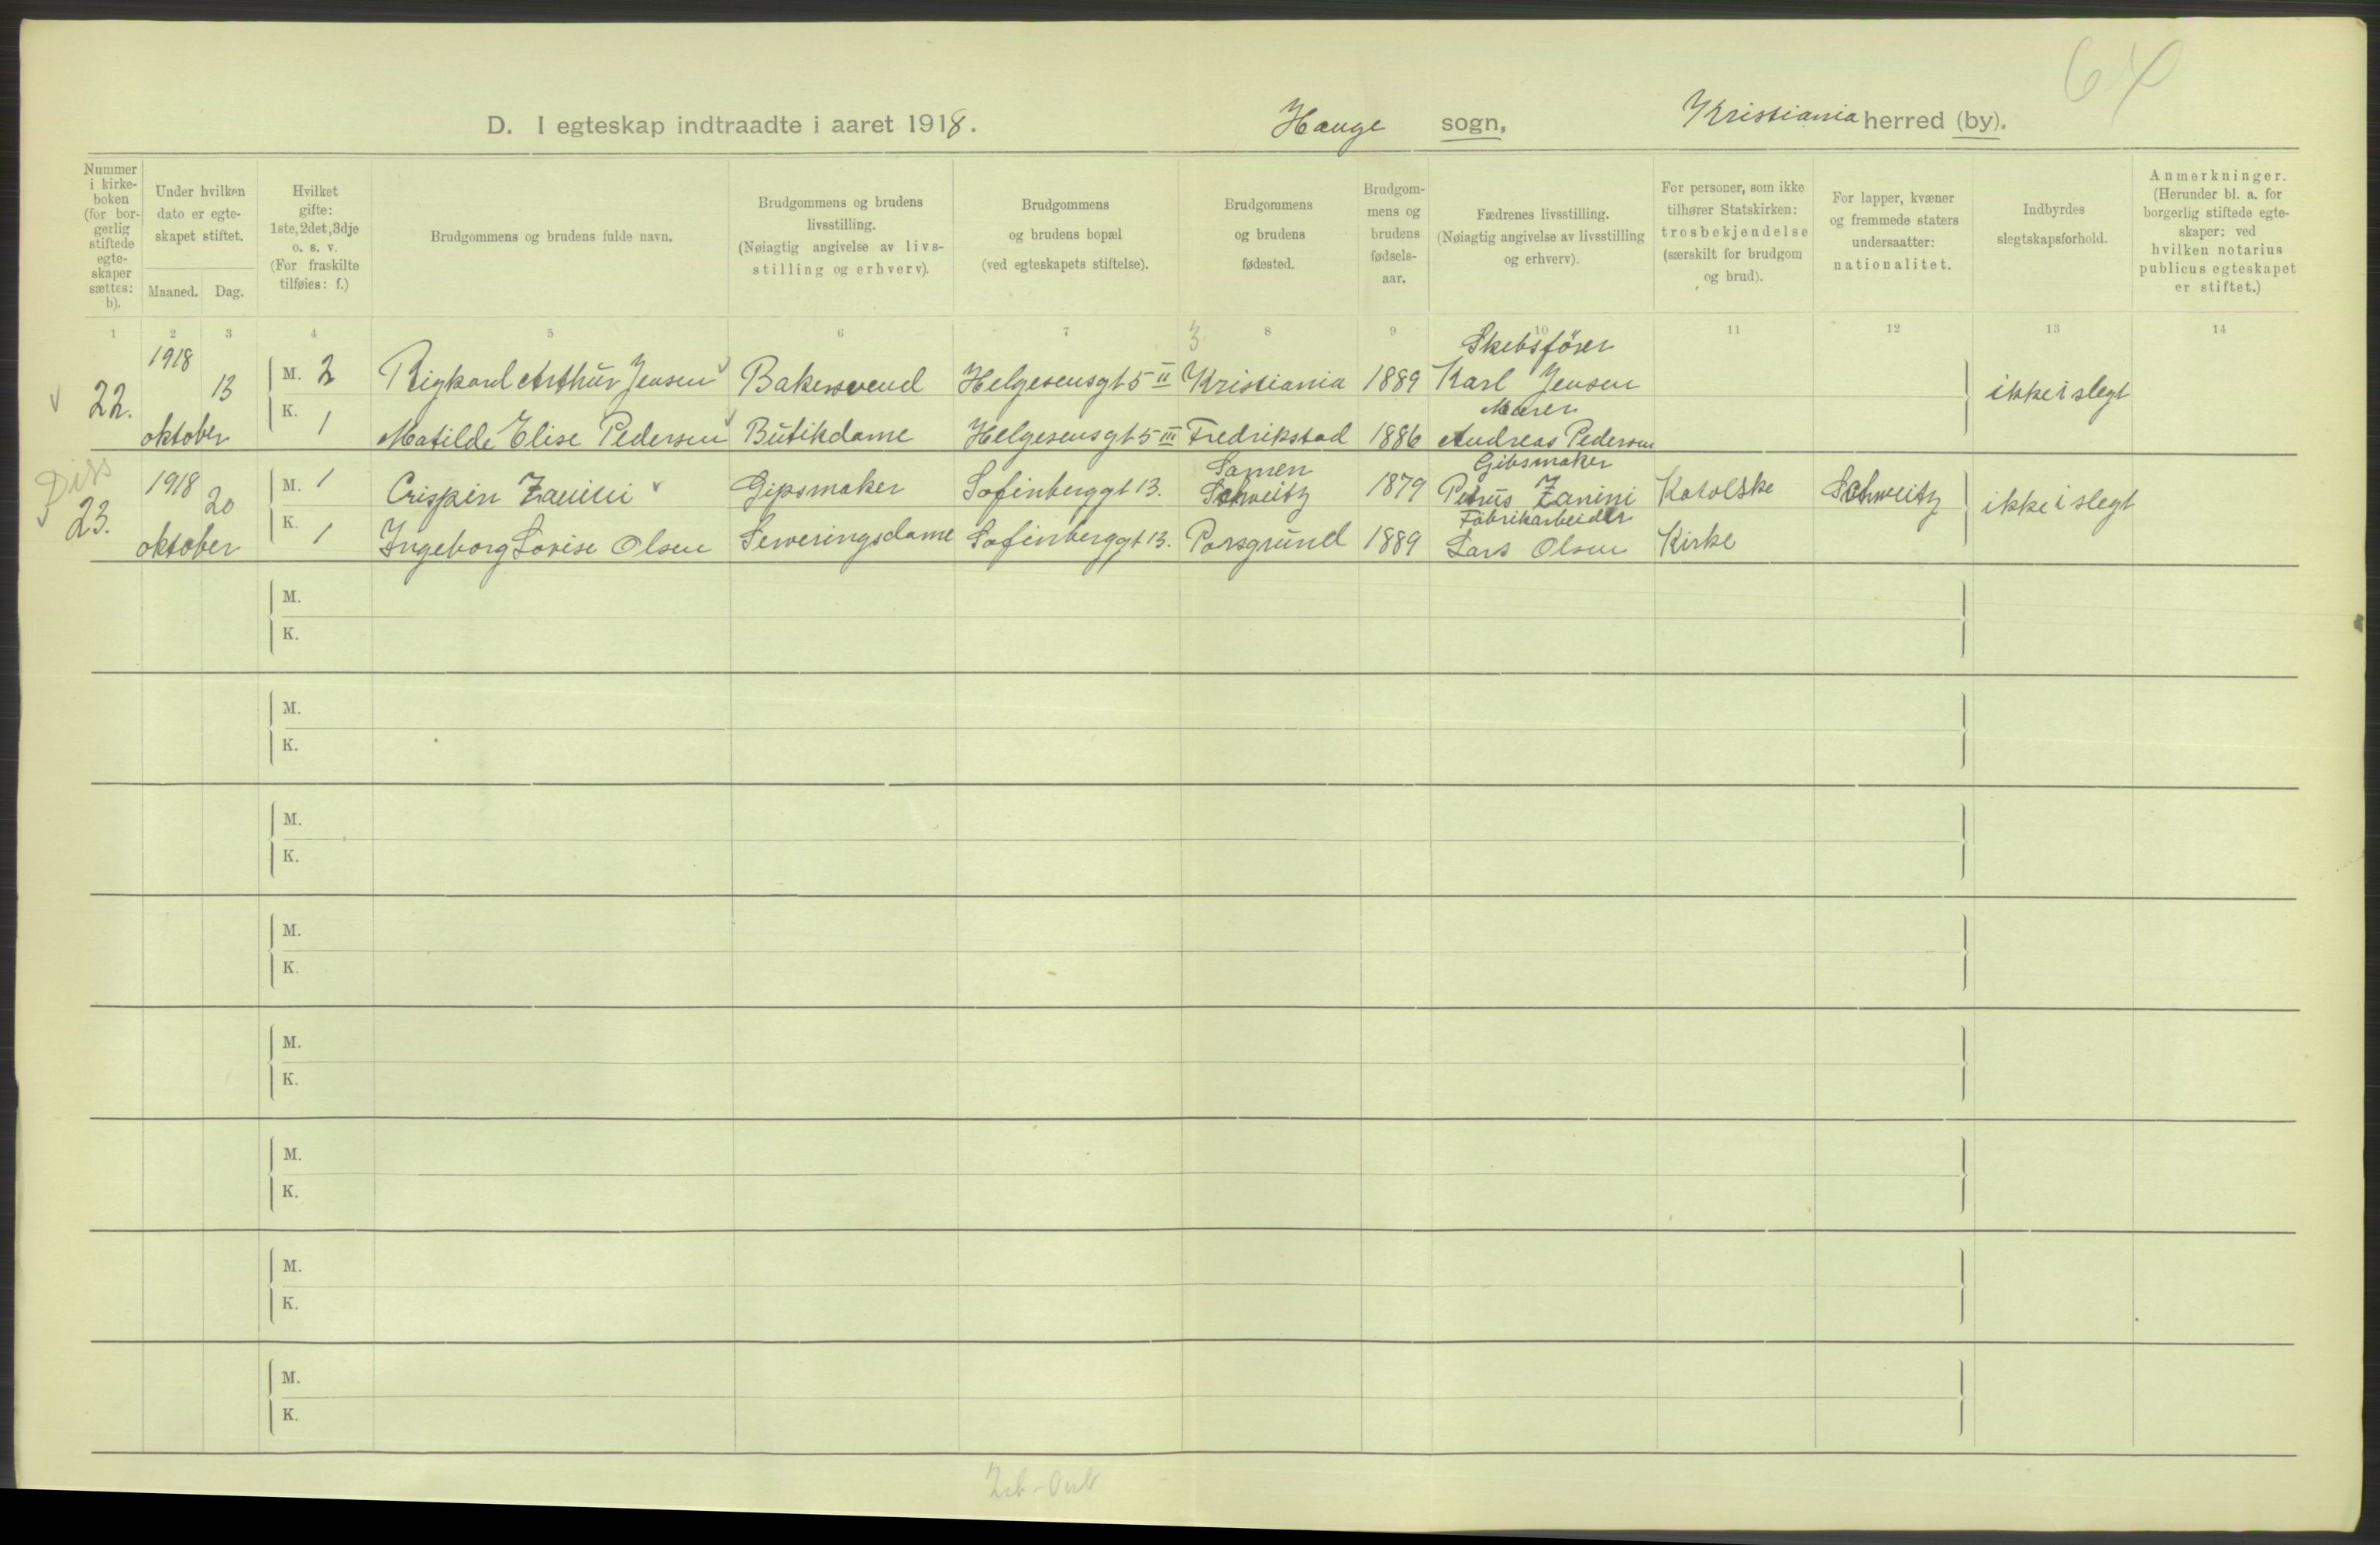 64
D. I egteskap indtraadte i aaret 1918. Hauge sogn, Kristiania herred (by).
Nummer i kirke-boken (for bor-gerlig stiftede egte-skaper sættes: b).
Under hvilken dato er egte-skapet stiftet.
Maaned. Dag.
Hvilket gifte: 1ste, 2det, 3dje o. s. v. (For fraskilte tilføies: f.)
Brudgommens og brudens fulde navn.
Brudgommens og brudens livsstilling. (Nøiagtig angivelse av livs-stilling og erhverv).
Brudgommens og brudens bopæl (ved egteskapets stiftelse).
Brudgommens og brudens fødested.
Brudgom-mens og brudens fødsels-aar.
Fædrenes livsstilling. (Nøiagtig angivelse av livsstilling og erhverv).
For personer, som ikke tilhører Statskirken: trosbekjendelse (særskilt for brudgom og brud).
For lapper, kvæner og fremmede staters undersaatter: nationalitet.
Indbyrdes slegtskapsforhold.
Anmerkninger. (Herunder bl. a. for borgerlig stiftede egte-skaper: ved hvilken notarius publicus egteskapet er stiftet.)
1 2 3 4 5 6 7 8 9 10 11 12 13 14
3
22. 1918 oktober 13
M. 2 Rigkard Arthur Jensen Bakersvend Helgesensgt 5 II Kristiania 1889 Skibsfører Karl Jensen
K. 1 Matilde Elise Pedersen Butikdame Helgesensgt 5 III Fredrikstad 1886 Murer Andreas Pedersen
ikke i slegt
Diss
23. 1918 oktober 20
M. 1 Crispin Zanini Gipsmaker Sofienberggt 13. Samen Schweitz 1879 Gibsmaker Petrus Zanini Katolske Schweitz
K. 1 Ingeborg Lovise Olsen Serveringsdame Sofienberggt 13. Porsgrund 1889 Fabrikarbeider Lars Olsen Kirke
ikke i slegt
M.
K.
M.
K.
M.
K.
M.
K.
M.
K.
M.
K.
M.
K.
M.
K.